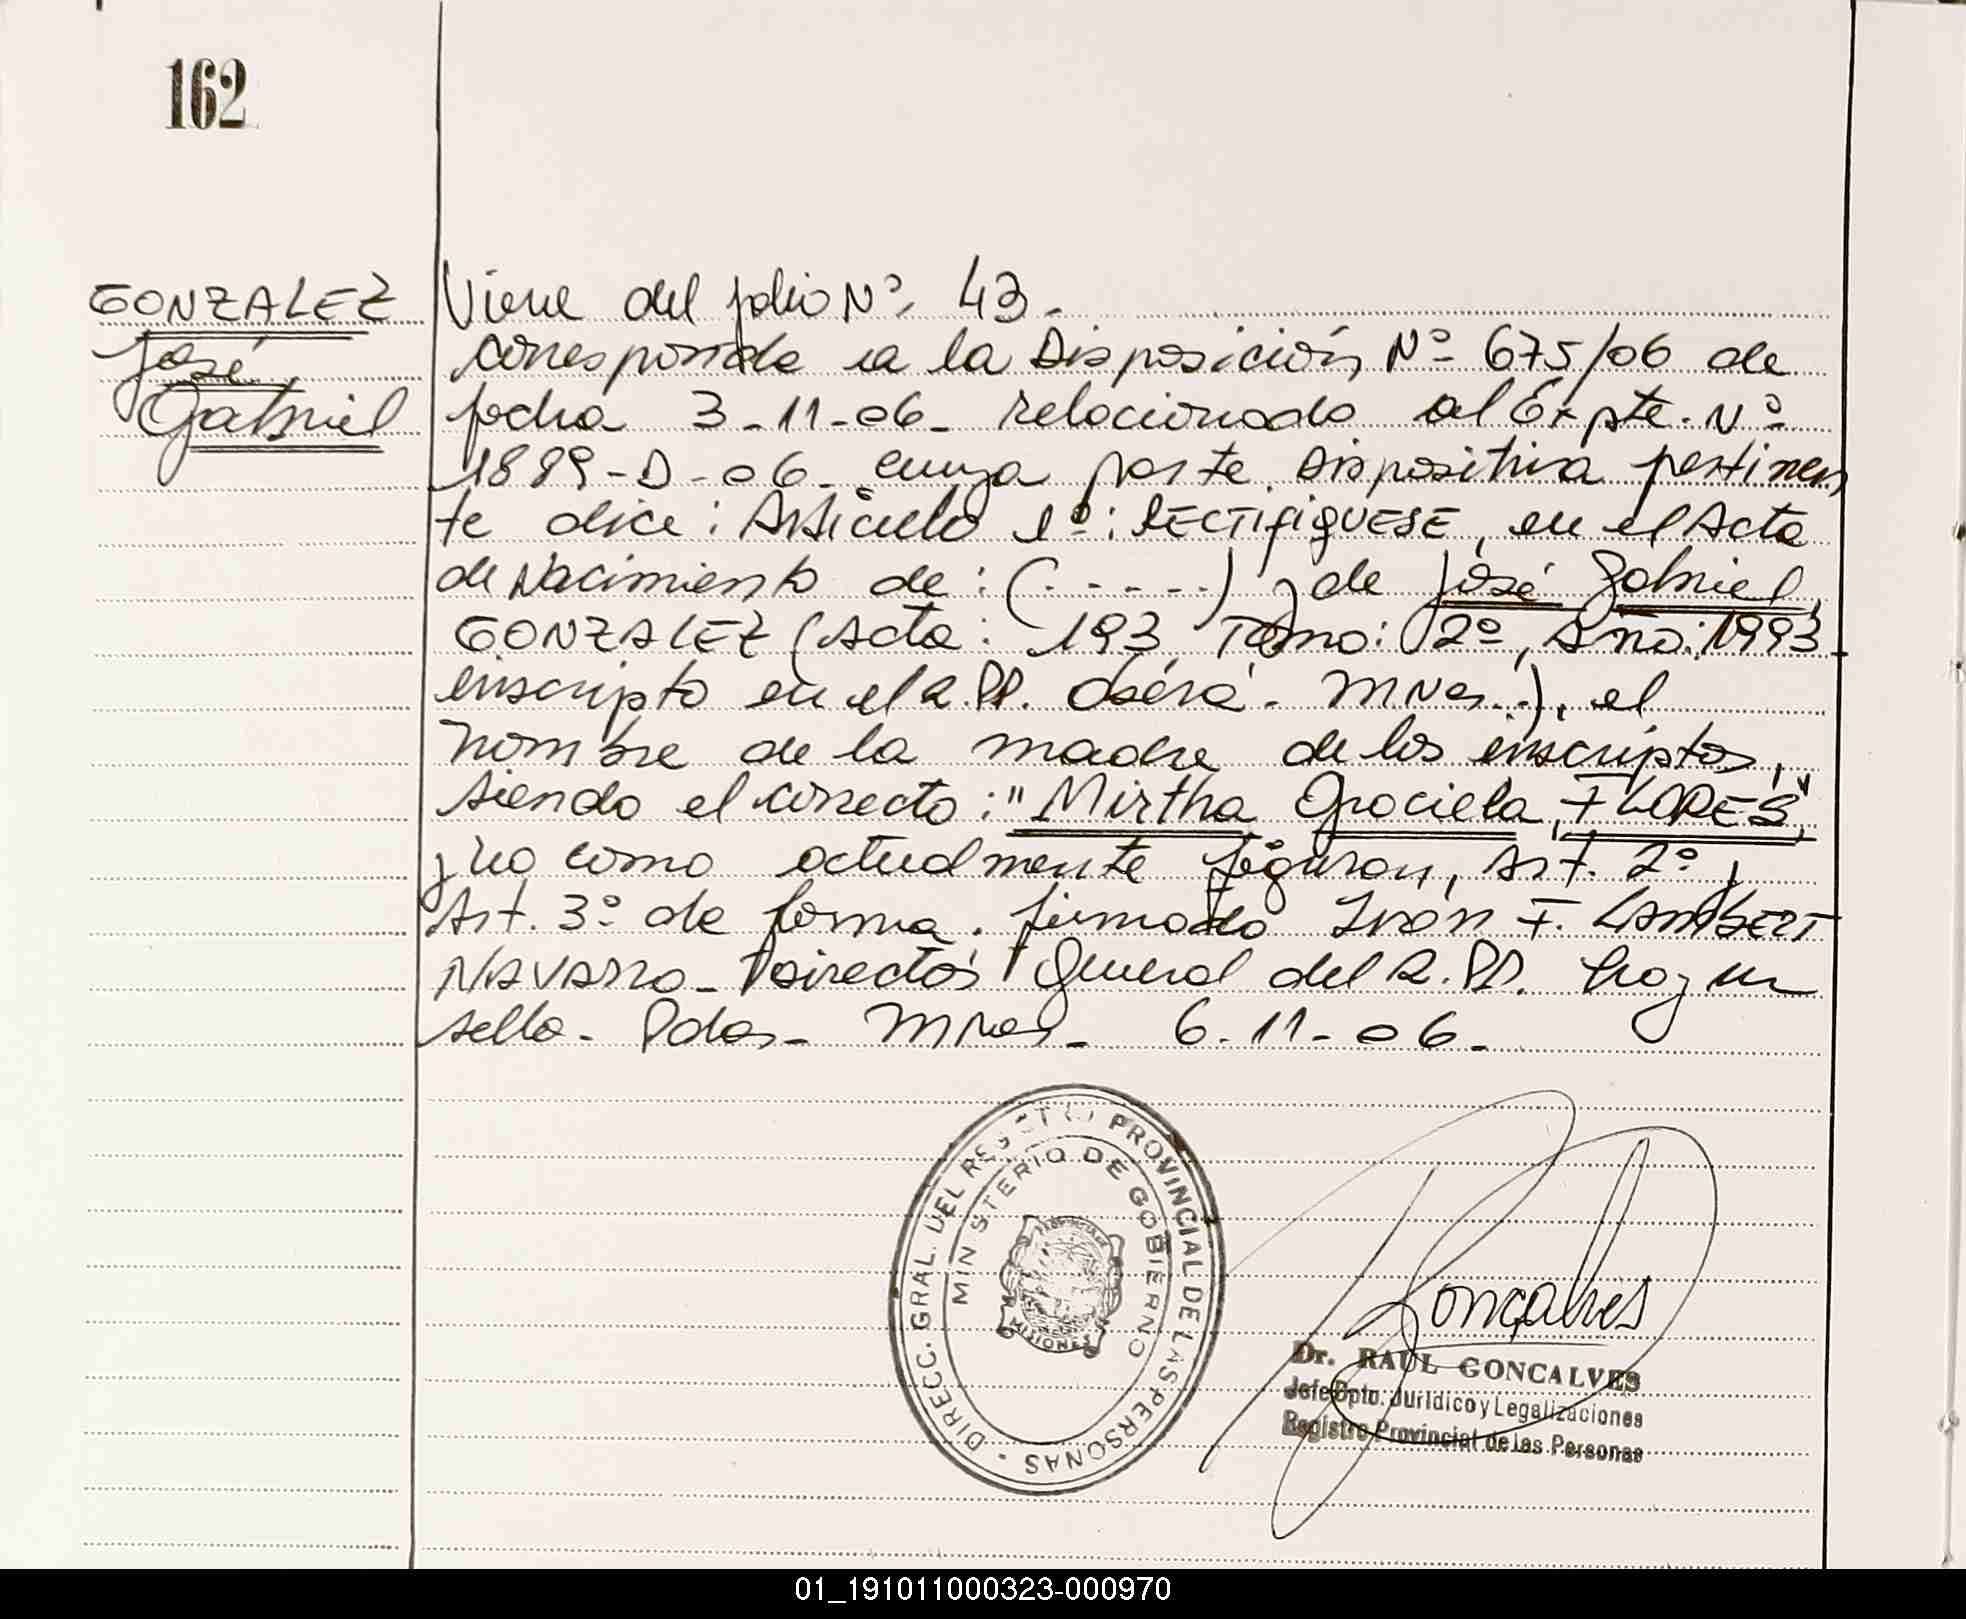 162
GONZALEZ
José
Gabriel
Viene del folio Nº 43.
corresponde a la Disposición Nº 675/06 de
fecha 3-11-06- relacionado al Expte. Nº
1889-D-06- cuya parte dispositiva pertinen
te dice: Articulo 1º: RECTIFIQUESE, en el Acta
de Nacimiento de: (.-----) y de José Gabriel
GONZALEZ (Acta: 193, Tomo: 2º, Año: 1993-
inscripto en el R.PP. Oberá- Mnes..), el
nombre de la madre de los inscriptos,
siendo el correcto: "Mirtha Graciela FLORES"
y no como actualmente figuran, Art. 2º y
Art. 3º de forma. firmado Iván F. LAMBERT
NAVARRO- Director General del R.PP. hay un
sello- Pdas- Mnes- 6-11-06-
DIRECC. GRAL. DEL REGISTRO PROVINCIAL DE LAS PERSONAS -
MINISTERIO DE GOBIERNO
MISIONES
Goncalves
Dr. RAUL GONCALVES
Jefe Dpto. Jurídico y Legalizaciones
Registro Provincial de las Personas
01_191011000323-000970